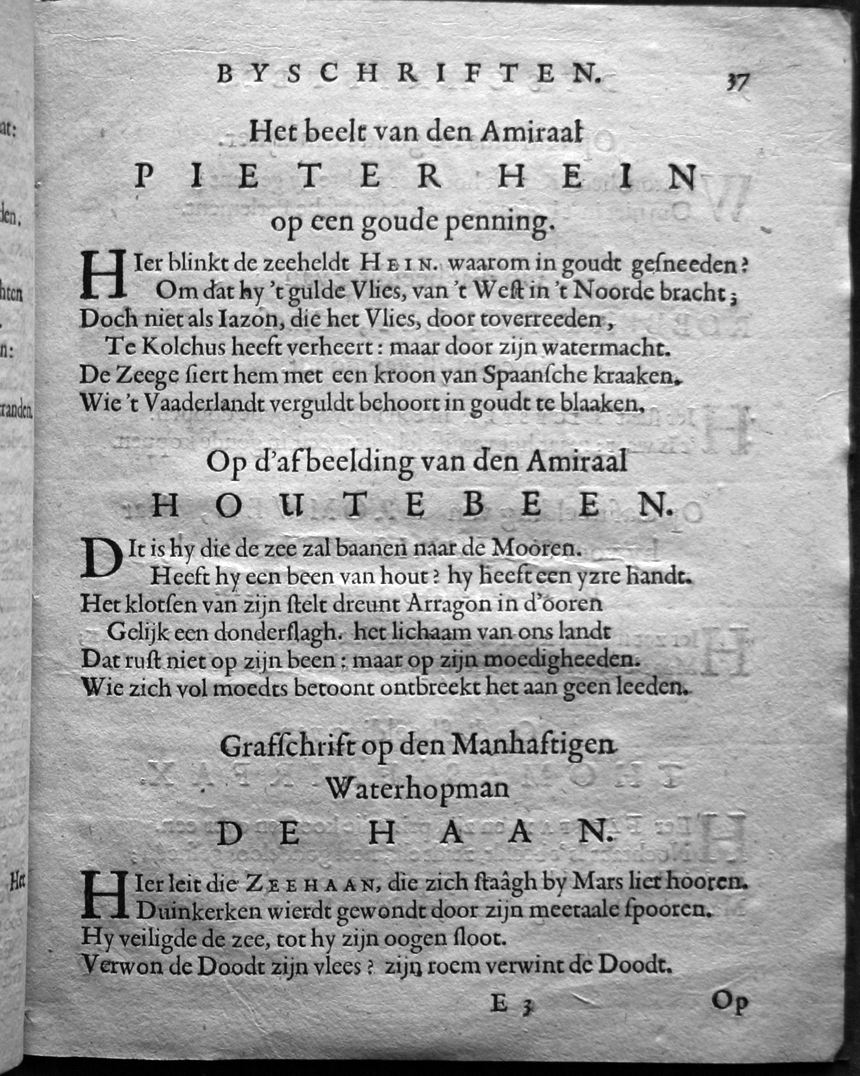 BYSCHRIFTEN. 37
Het beelt van den Amiraal
PIETER HEIN
op een goude penning.
HIer blinkt de zeeheldt HEIN. waarom in goudt geſneeden?
Om dat hy 't gulde Vlies, van 't Weſt in 't Noorde bracht;
Doch niet als Iazon, die het Vlies, door toverreeden,
Te Kolchus heeft verheert: maar door zijn watermacht.
De Zeege ſiert hem met een kroon van Spaanſche kraaken.
Wie 't Vaaderlandt verguldt behoort in goudt te blaaken.
Op d'afbeelding van den Amiraal
HOUTEBEEN.
DIt is hy die de zee zal baanen naar de Mooren.
Heeft hy een been van hout? hy heeft een yzre handt.
Het klotſen van zijn ſtelt dreunt Arragon in d'ooren
Gelijk een donderſlagh. het lichaam van ons landt
Dat ruſt niet op zijn been: maar op zijn moedigheeden.
Wie zich vol moedts betoont ontbreekt het aan geen leeden.
Grafſchrift op den Manhaftigen
Waterhopman
DE HAAN.
HIer leit die ZEEHAAN, die zich ſtaâgh by Mars liet hooren.
Duinkerken wierdt gewondt door zijn meetaale ſpooren.
Hy veiligde de zee, tot hy zijn oogen ſloot.
Verwon de Doodt zijn vlees? zijn roem verwint de Doodt.
E 3 Op